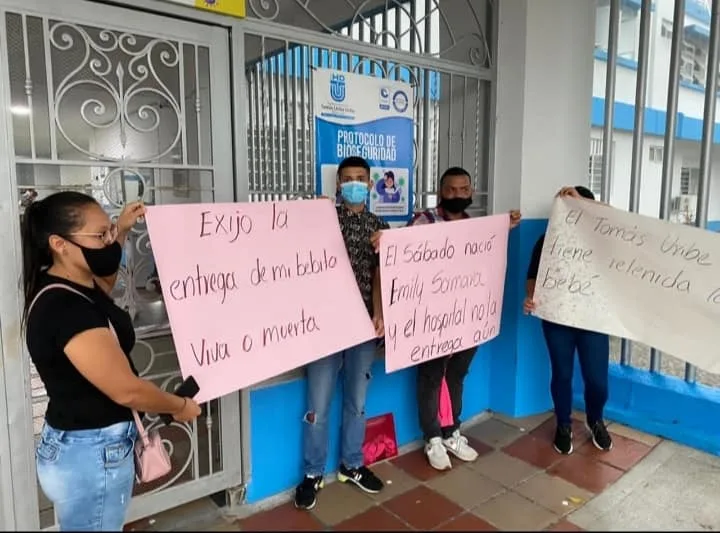 HD
PROTOCOLO DE
BIOSEGURIDAD
Exijo la
entrega de mi bebita
Viva o muerta
El Sábado nació
Emily Samara
y el hospital no la
entrega aún
El Tomás Uribe
tiene retenida la
bebé